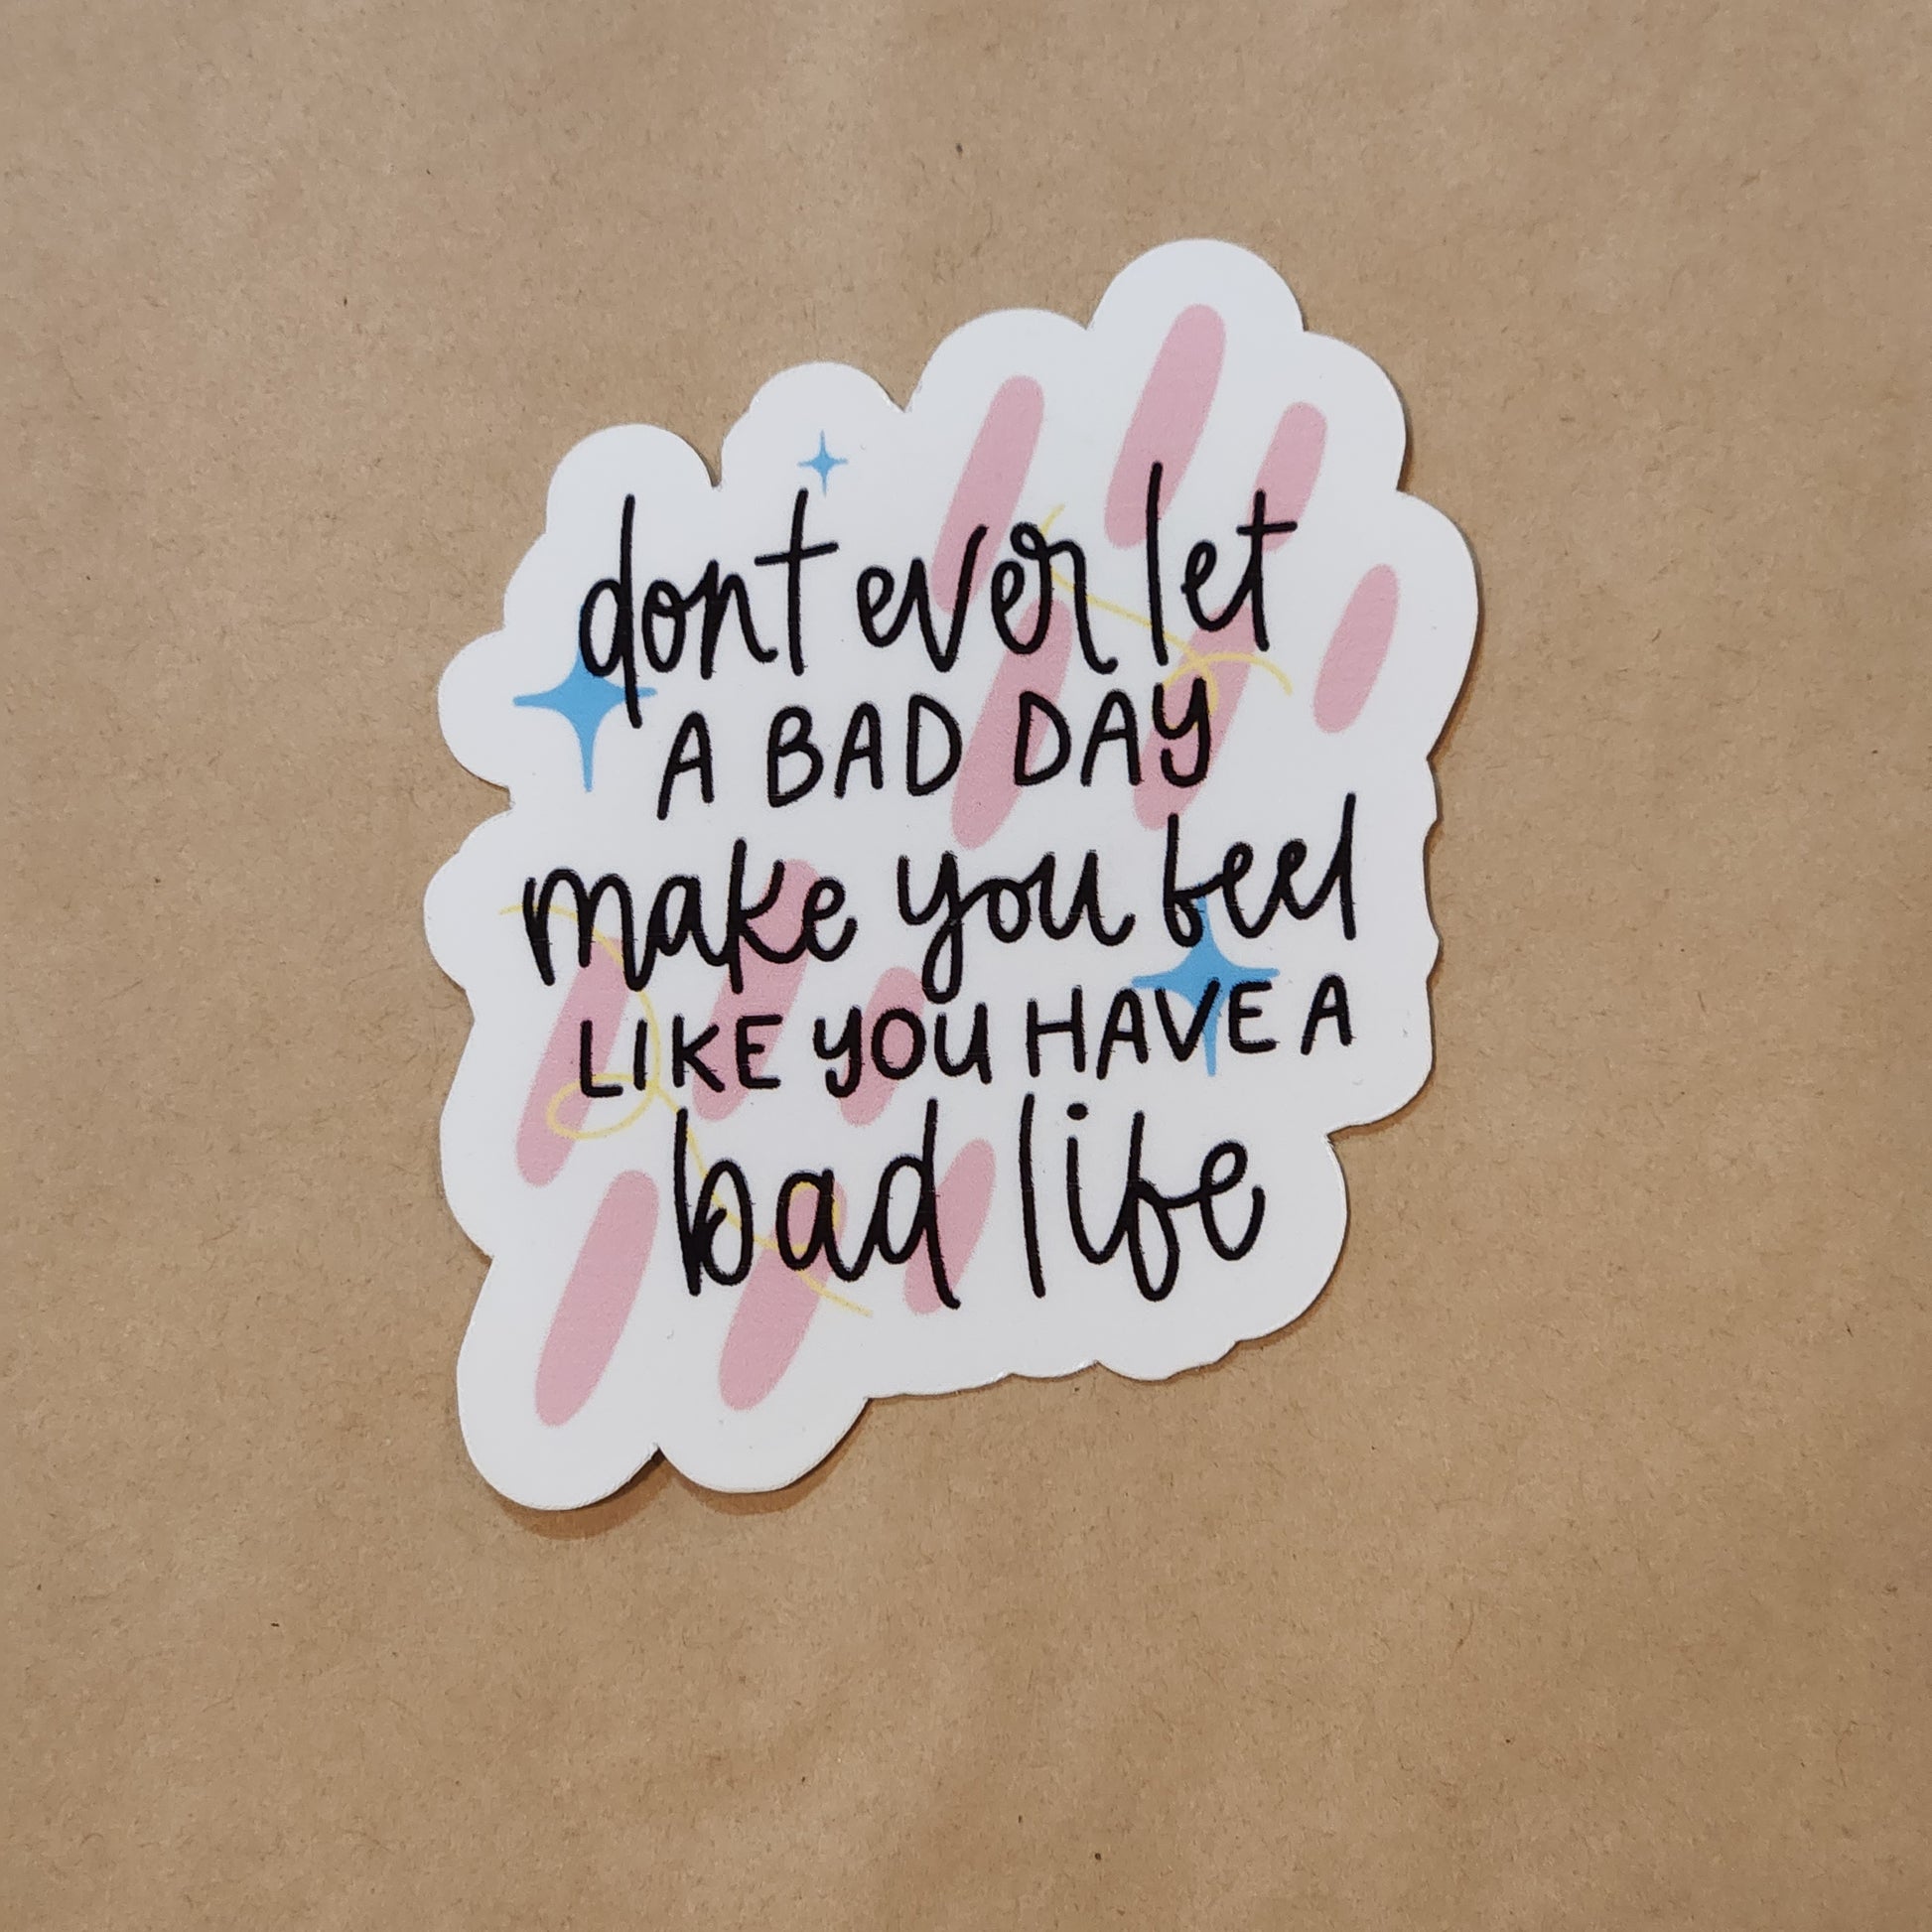 dont ever let
A BAD DAY
make you feel
LIKE YOU HAVE A
bad life